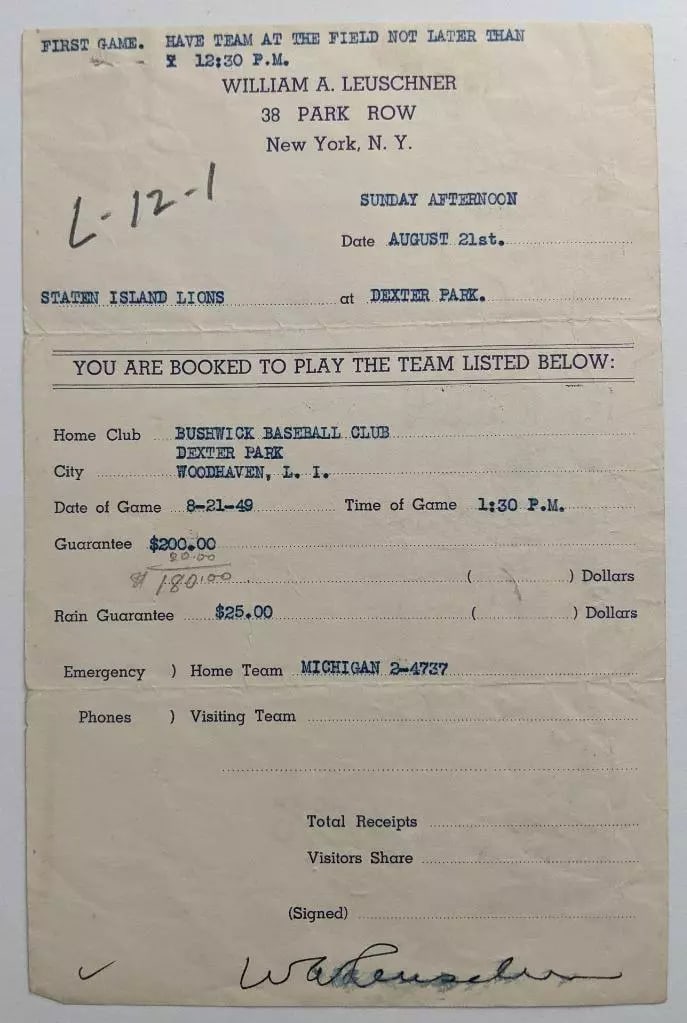 FIRST GAME. HAVE TEAM AT THE FIELD NOT LATER THAN
12:30 P.M.
WILLIAM A. LEUSCHNER
38 PARK ROW
New York, N. Y.
L-12-1
SUNDAY AFTERNOON
Date AUGUST 21st.
STATEN ISLAND LIONS at DEXTER PARK.
YOU ARE BOOKED TO PLAY THE TEAM LISTED BELOW:
Home Club BUSHWICK BASEBALL CLUB
DEXTER PARK
City WOODHAVEN, L. I.
Date of Game 8-21-49 Time of Game 1:30 P.M.
Guarantee $200.00
20.00
$180.00 ( ) Dollars
Rain Guarantee $25.00 ( ) Dollars
Emergency ) Home Team MICHIGAN 2-4737
Phones ) Visiting Team
Total Receipts
Visitors Share
(Signed)
W A Leuschner